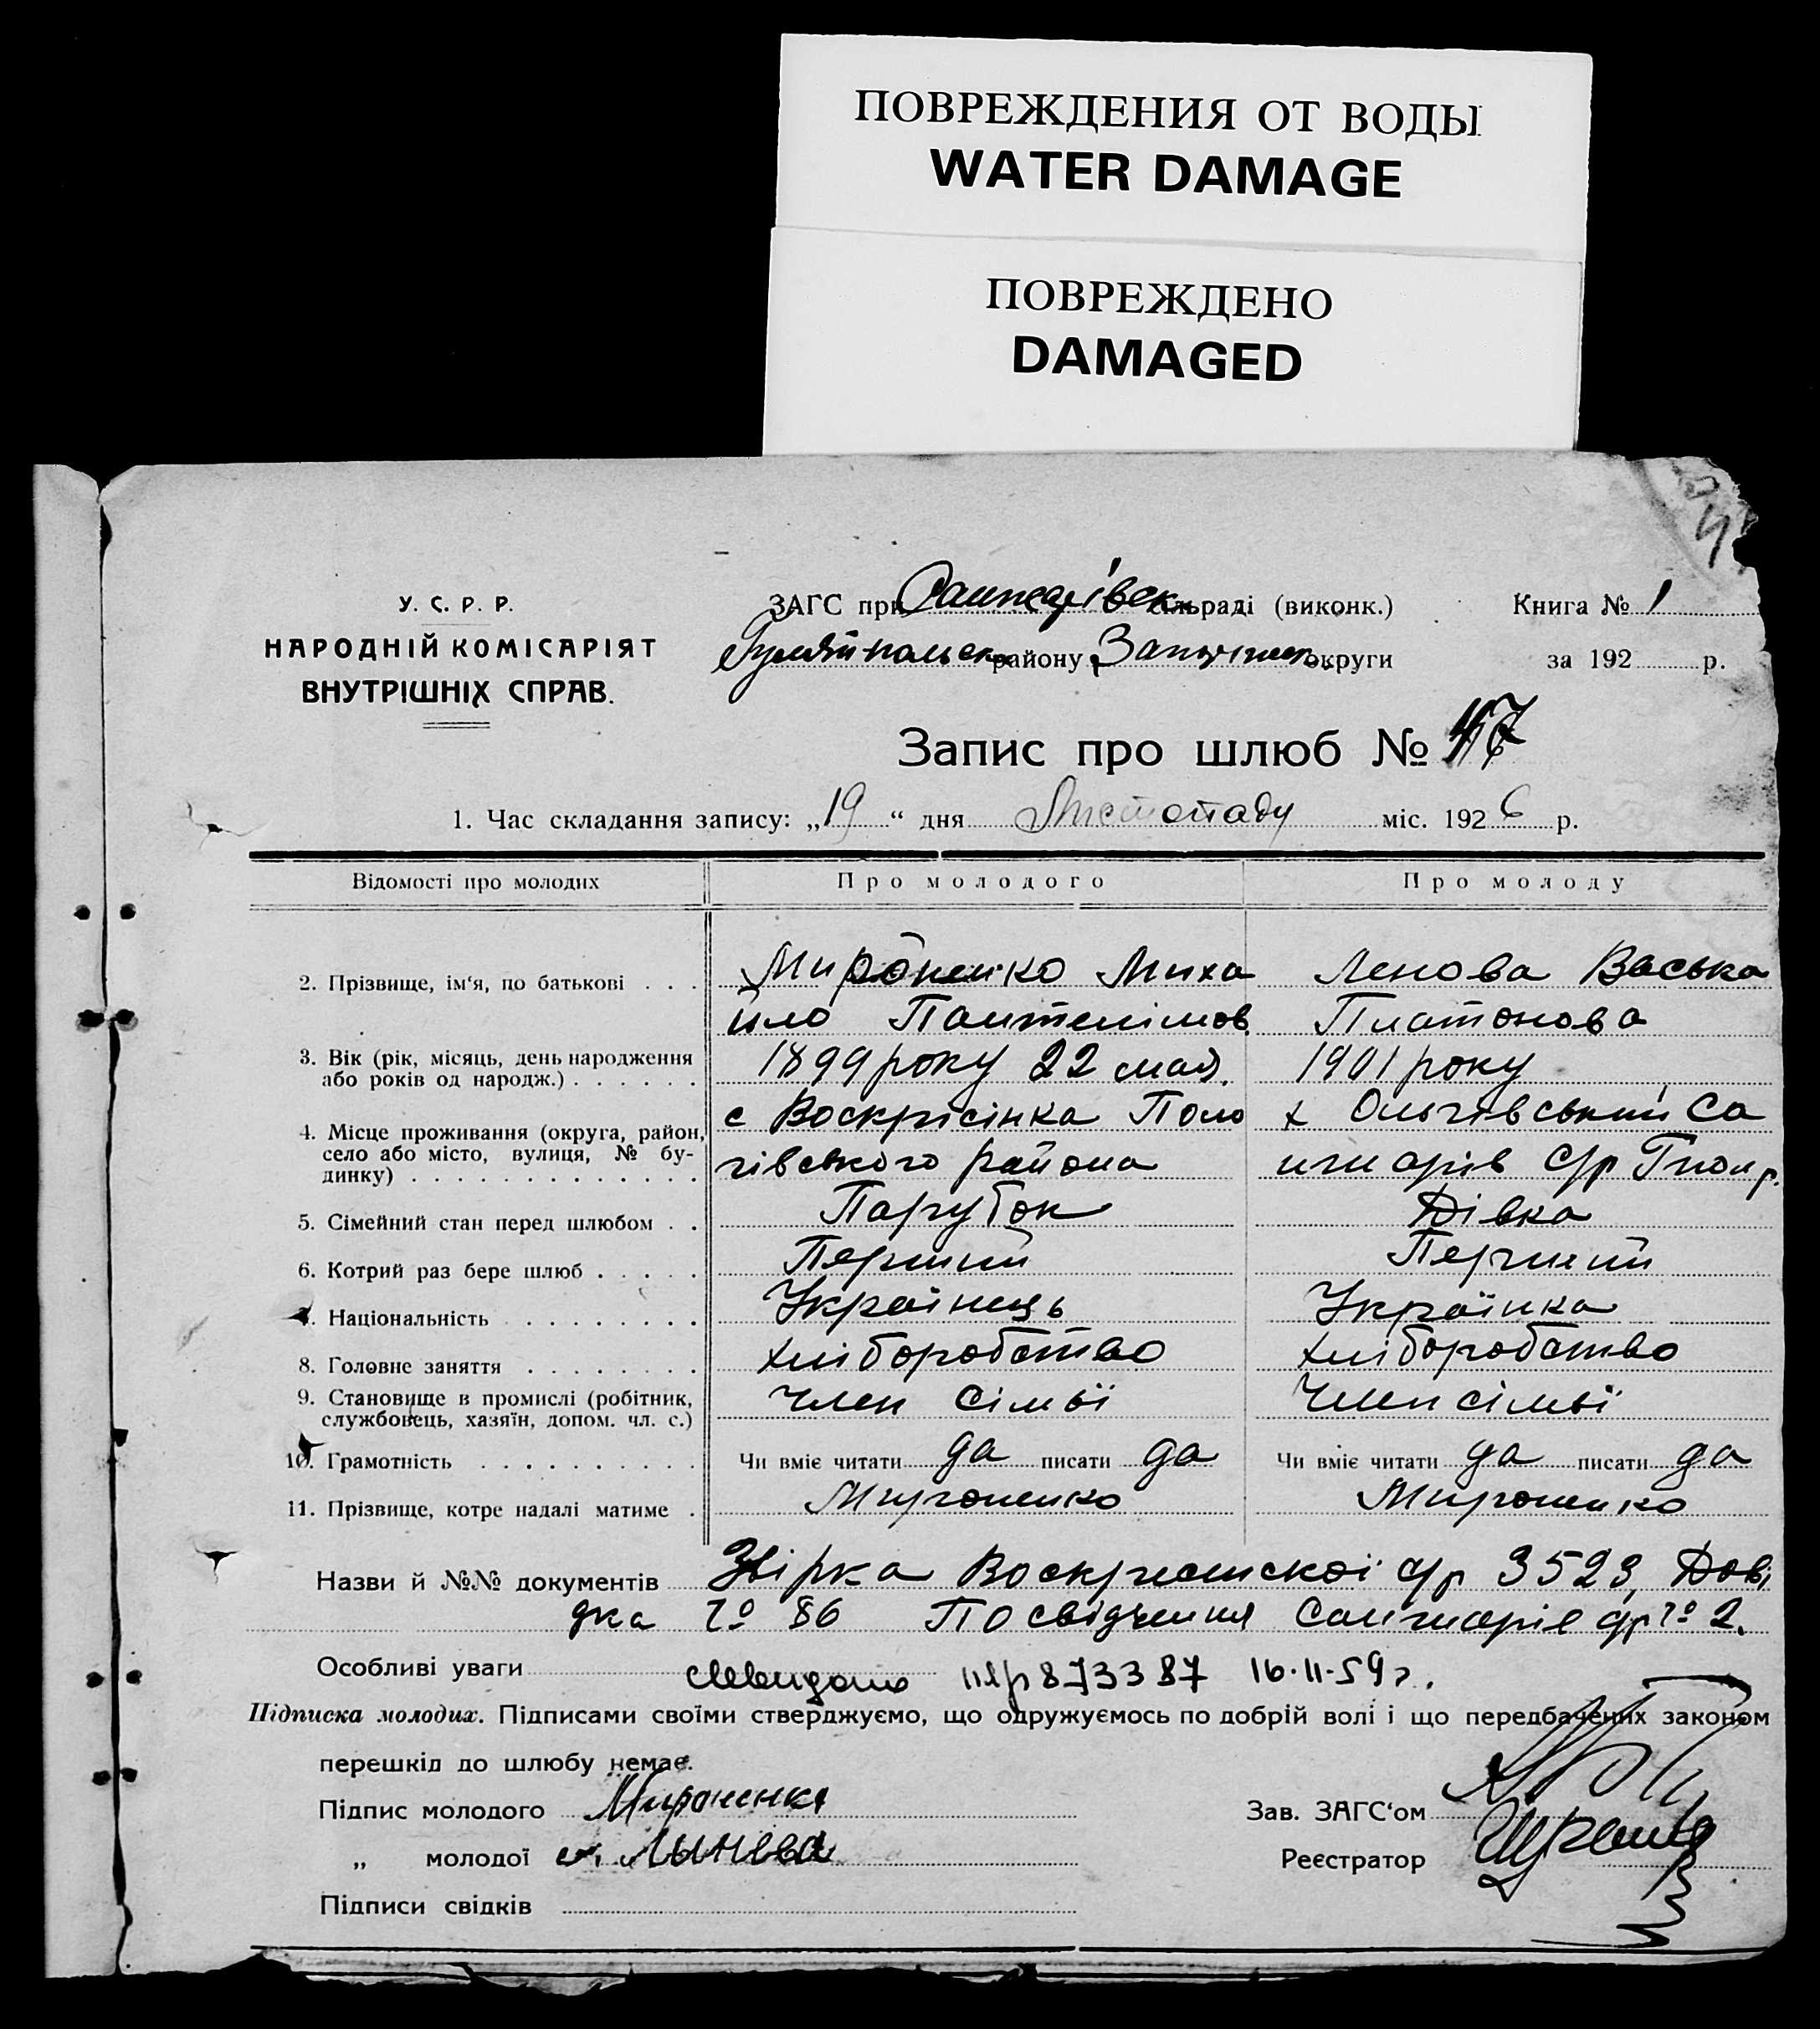 ПОВРЕЖДЕНИЯ ОТ ВОДЫ
WATER DAMAGE
ПОВРЕЖДЕНО
DAMAGED
У. С. Р. Р.
НАРОДНІЙ КОМІСАРІЯТ
ВНУТРІШНІХ СПРАВ.
ЗАГС при сільраді (виконк.)
району округи
Книга № 1
за 192 р.
Запис про шлюб № 47
1. Час складання запису: „19“ дня Листопаду міс. 1926 р.
Відомості про молодих Про молодого Про молоду
2. Прізвище, ім‘я, по батькові . . . Мироненко Миха Ленова Васька
йло Пантелімов Платонова
3. Вік (рік, місяць, день народження
або років од народж.) . . . . . . 1899 року 22 мая. 1901 року
4. Місце проживання (округа, район,
село або місто, вулиця, № бу-
динку) . . . . . . . . . . . . . с Воскрісінка Поло х Ольгівський Са
гівського района нжарів с/р Гполр.
5. Сімейний стан перед шлюбом . . Парубок Дівка
6. Котрий раз бере шлюб . . . . . Перший Перший
7. Національність . . . . . . . . Українець Українка
8. Головне заняття . . . . . . . . хліборобство хліборобство
9. Становище в промислі (робітник,
службовець, хазяїн, допом. чл. с.) Член сімьї Член сімьї
10. Грамотність . . . . . . . . . . Чи вміє читати да писати да Чи вміє читати да писати да
11. Прізвище, котре надалі матиме . Мироненко Мироненко
Назви й №№ документів Звірка с/р 3523, Дові
дка № 86 Посвідчення с/р № 2.
Особливі уваги 873387 16·11·59 г.
Підписка молодих. Підписами своїми стверджуємо, що одружуємось по добрій волі і що передбачених законом
перешкід до шлюбу немає.
Підпис молодого Мироненко
„ молодої
Зав. ЗАГС‘ом
Реєстратор
Підписи свідків